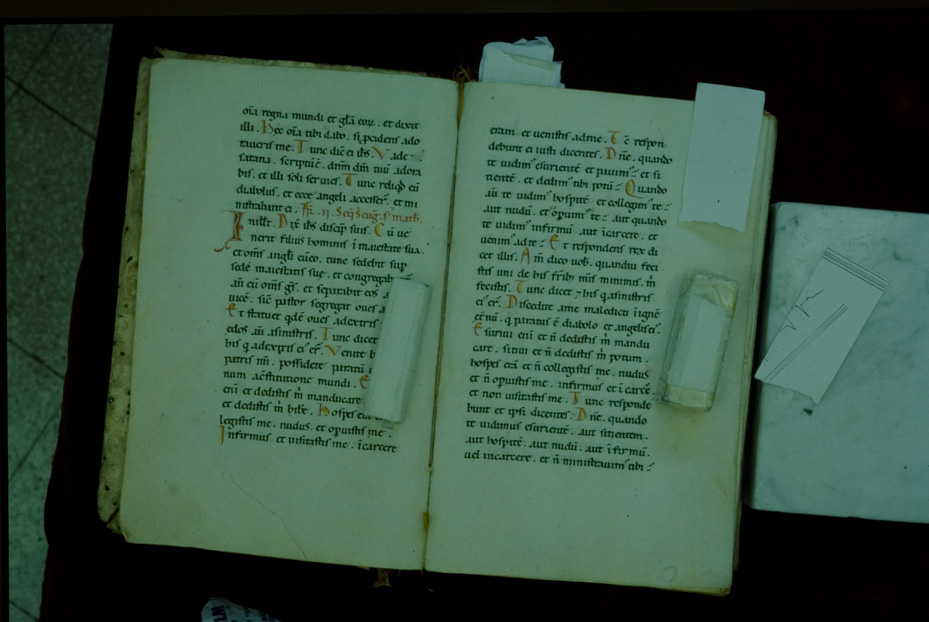 oīa regna mundi et gl̄a eoꝝ. et dixit
illi. Hec oīa tibi dabo. si ꝓcidens ado
raueris me. Tunc dic̄ ei ih̄s. Vade
satana. scriptū ē. dn̄m dm̄ tuū adora
bis. et illi soli seruies. Tunc reliq̄d eū
diabolus. et ecce angeli accesser̄. et mi
nistrabant ei. Fr̄. ii. Seq̄ s̄ euḡ. s̄ math.
In illo t̄. Dix̄ ih̄s discip̄ suis. Cū ue
nerit filius hominis ī maiestate sua.
et om̄s angl̄i cū eo. tunc sedebit sup̄
sedē maiestatis sue. et congregab
an̄ eū om̄s gs̄. et separabit eos a
uicē. sic̄ pastor segregat oues a
et statuet qdē oues a dextris
edos aū a sinistris. Tunc dicet
his q̄ a dextris ei᾽ er̄. Venite b
patris mī. possidete paratū
num a c̄stitutione mundi. E
eni et dedistis m̄ manducare
et dedistis m̄ bibē. Hospes
legistis me. nudus. et opuistis me.
Infirmus. et uisitastis me. ī carcere
eram. et uenistis ad me. Tc̄ respon
debunt ei iusti dicentes. Dn̄e. quando
te uidim᾽ esurientē et pauim᾽. et si
tientē. et dedim᾽ tibi potū. Quando
aū te uidim᾽ hospitē. et collegim᾽ te
aut nudū. et opuim᾽ te. aut quando
te uidim᾽ infirmū aut ī carcere. et
uenim᾽ ad te. Et respondens rex di
cet illis. Am̄ dico uob̄. quandiu feci
stis uni de his frīb᾽ mīs minimis. m̄
fecistis. Tunc dicet ⁊ his q̄ a sinistris
ei᾽ er̄. Discedite a me maledicti ī ignē
et̄nū. q̄ paratus ē diabolo et angelis ei᾽.
Esuriui eni et n̄ dedistis m̄ mandu
care. sitiui et n̄ dedistis m̄ potum.
hospes erā et n̄ collegistis me. nudus
et n̄ opuistis me. infirmus et ī carcē.
et non uisitastis me. Tunc responde
bunt et ipsi dicentes. Dn̄e. quando
te uidimus esurientē. aut sitientem.
aut hospitē. aut nudū. aut ī firmū.
uel in carcere. et n̄ ministrauim᾽ tibi